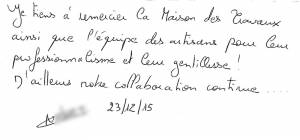 Je tiens à remercier la Maison des Travaux
ainsi que l'équipe des artisans pour leur
professionnalisme et leur gentillesse !
D'ailleurs notre collaboration continue ....
23/12/15